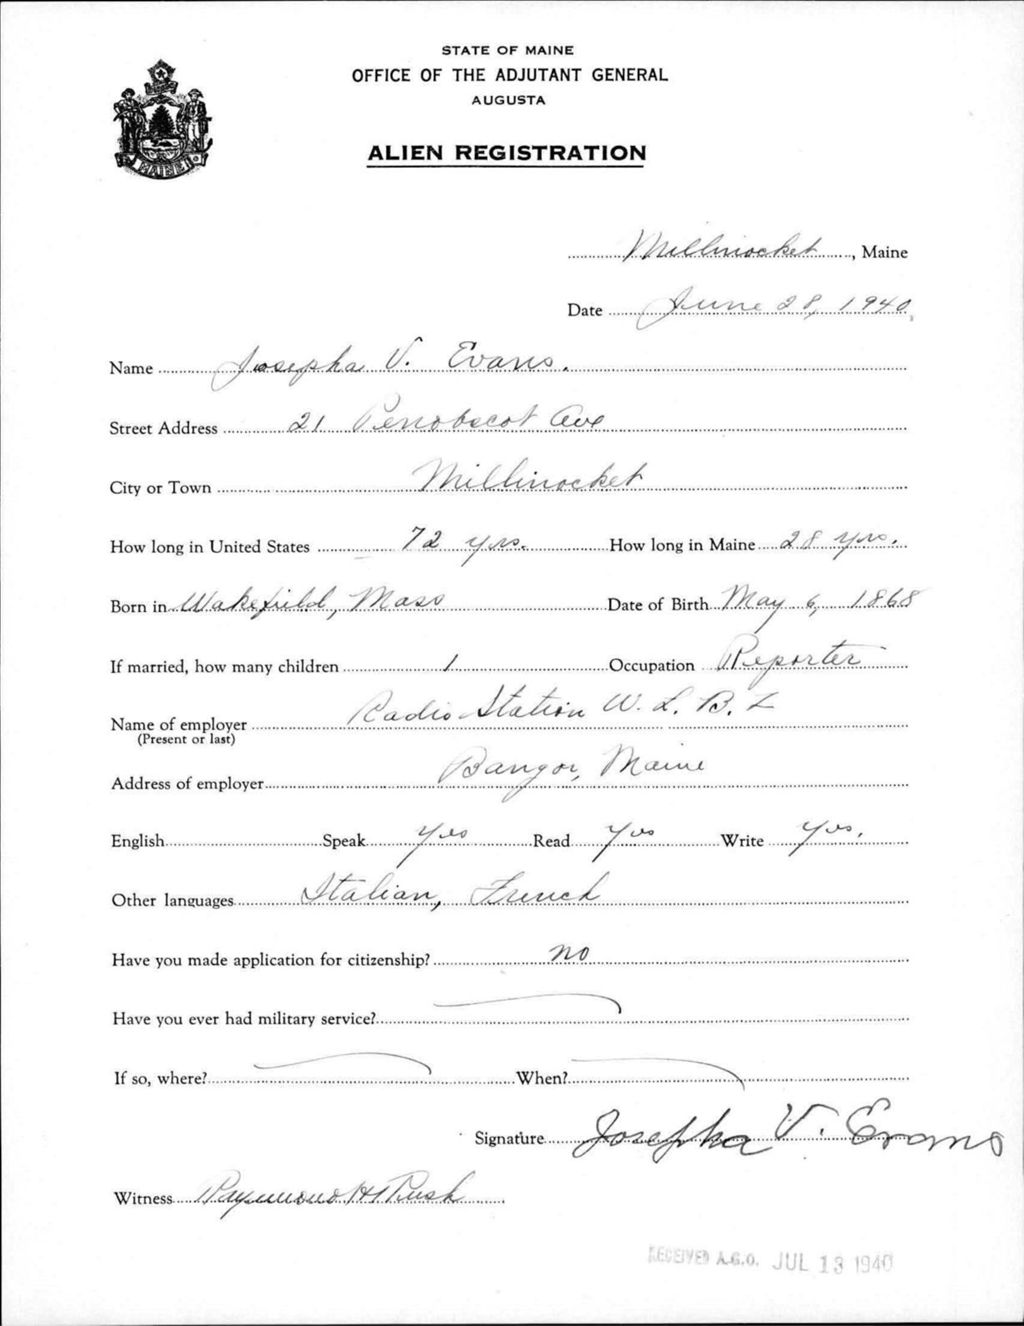 STATE OF MAINE
OFFICE OF THE ADJUTANT GENERAL
AUGUSTA
ALIEN REGISTRATION
MAINE
Millinocket, Maine
Date June 28, 1940
Name Josepha V. Evans.
Street Address 21 Penobscot Ave
City or Town Millinocket
How long in United States 72 yrs. How long in Maine 28 yrs.
Born in Wakefield, Mass Date of Birth May 6, 1868
If married, how many children 1 Occupation Reporter
Name of employer Radio Station W. L. B. Z
(Present or last)
Address of employer Bangor, Maine
English Speak Yes Read Yes Write Yes.
Other languages Italian, French
Have you made application for citizenship? no
Have you ever had military service?
If so, where? When?
Signature Josepha V. Evans
Witness Raymond H Rush
RECEIVED A.G.O. JUL 13 1940